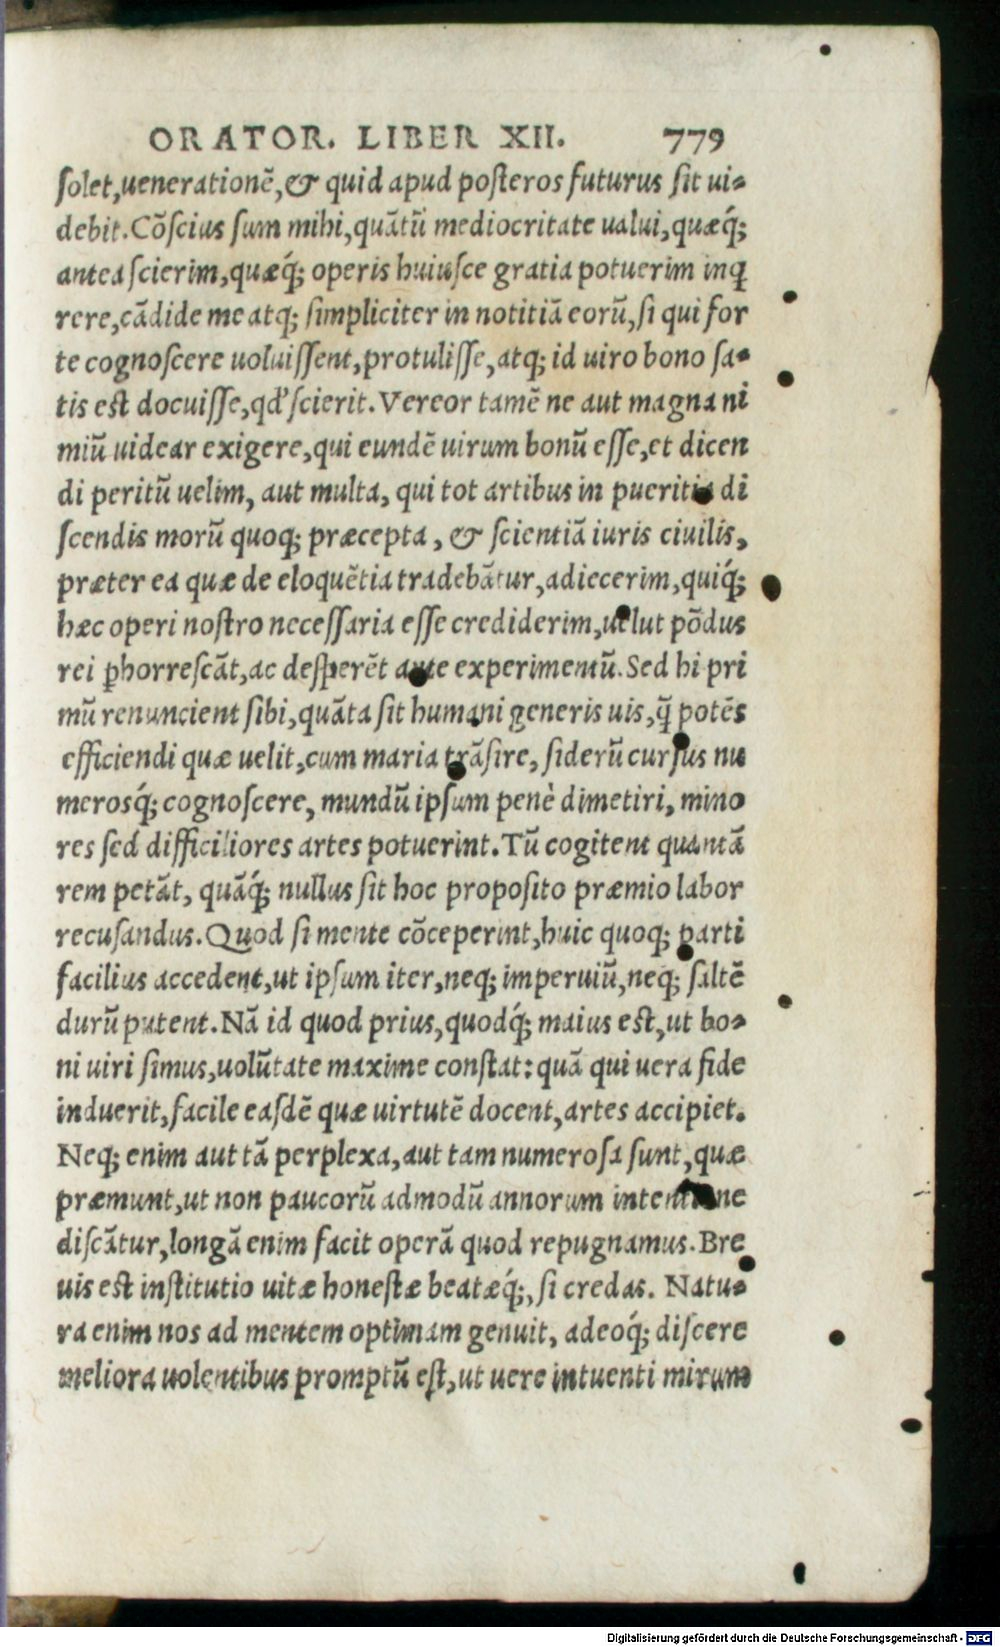 ORATOR. LIBER XII. 779
ſolet,uenerationẽ,& quid apud poſteros futurus ſit ui-
debit.Cõſcius ſum mihi,quãtũ mediocritate ualui,quæq́;
antea ſcierim,quæq́; operis huiuſce gratia potuerim inq
rere,cãdide me atq; ſimpliciter in notitiã eorũ,ſi qui for
te cognoſcere uoluiſſent,protuliſſe,atq; id uiro bono ſa-
tis eſt docuiſſe,qd' ſcierit.Vereor tamẽ ne aut magna ni
miũ uidear exigere,qui eundẽ uirum bonũ eſſe,et dicen
di peritũ uelim, aut multa, qui tot artibus in pueritia di
ſcendis morũ quoq; præcepta, & ſcientiã iuris ciuilis,
præter ea quæ de eloquẽtia tradebãtur,adiecerim,quiq́;
hæc operi noſtro neceſſaria eſſe crediderim,uelut põdus
rei ꝑhorreſcãt,ac deſperẽt ante experimentũ.Sed hi pri
mũ renuncient ſibi,quãta ſit humani generis uis,q̃ potẽs
efficiendi quæ uelit,cum maria trãſire, ſiderũ curſus nu
meroſq́; cognoſcere, mundũ ipſum penè dimetiri, mino
res ſed difficiliores artes potuerint.Tũ cogitent quantã
rem petãt, quãq́; nullus ſit hoc propoſito præmio labor
recuſandus.Quod ſi mente cõceperint,huic quoq; parti
facilius accedent,ut ipſum iter,neq; imperuiũ,neq; ſaltẽ
durũ putent.Nã id quod prius,quodq́; maius eſt,ut bo-
ni uiri ſimus,uolũtate maxime conſtat:quã qui uera fide
induerit,facile eaſdẽ quæ uirtutẽ docent,artes accipiet.
Neq; enim aut tã perplexa,aut tam numeroſa ſunt,quæ
præmunt,ut non paucorũ admodũ annorum intentione
diſcãtur,longã enim facit operã quod repugnamus.Bre
uis eſt inſtitutio uitæ honeſtæ beatæq́;,ſi credas. Natu-
ra enim nos ad mentem optimam genuit, adeoq́; diſcere
meliora uolentibus promptũ eſt,ut uere intuenti mirum
Digitalisierung gefördert durch die Deutsche Forschungsgemeinschaft - DFG